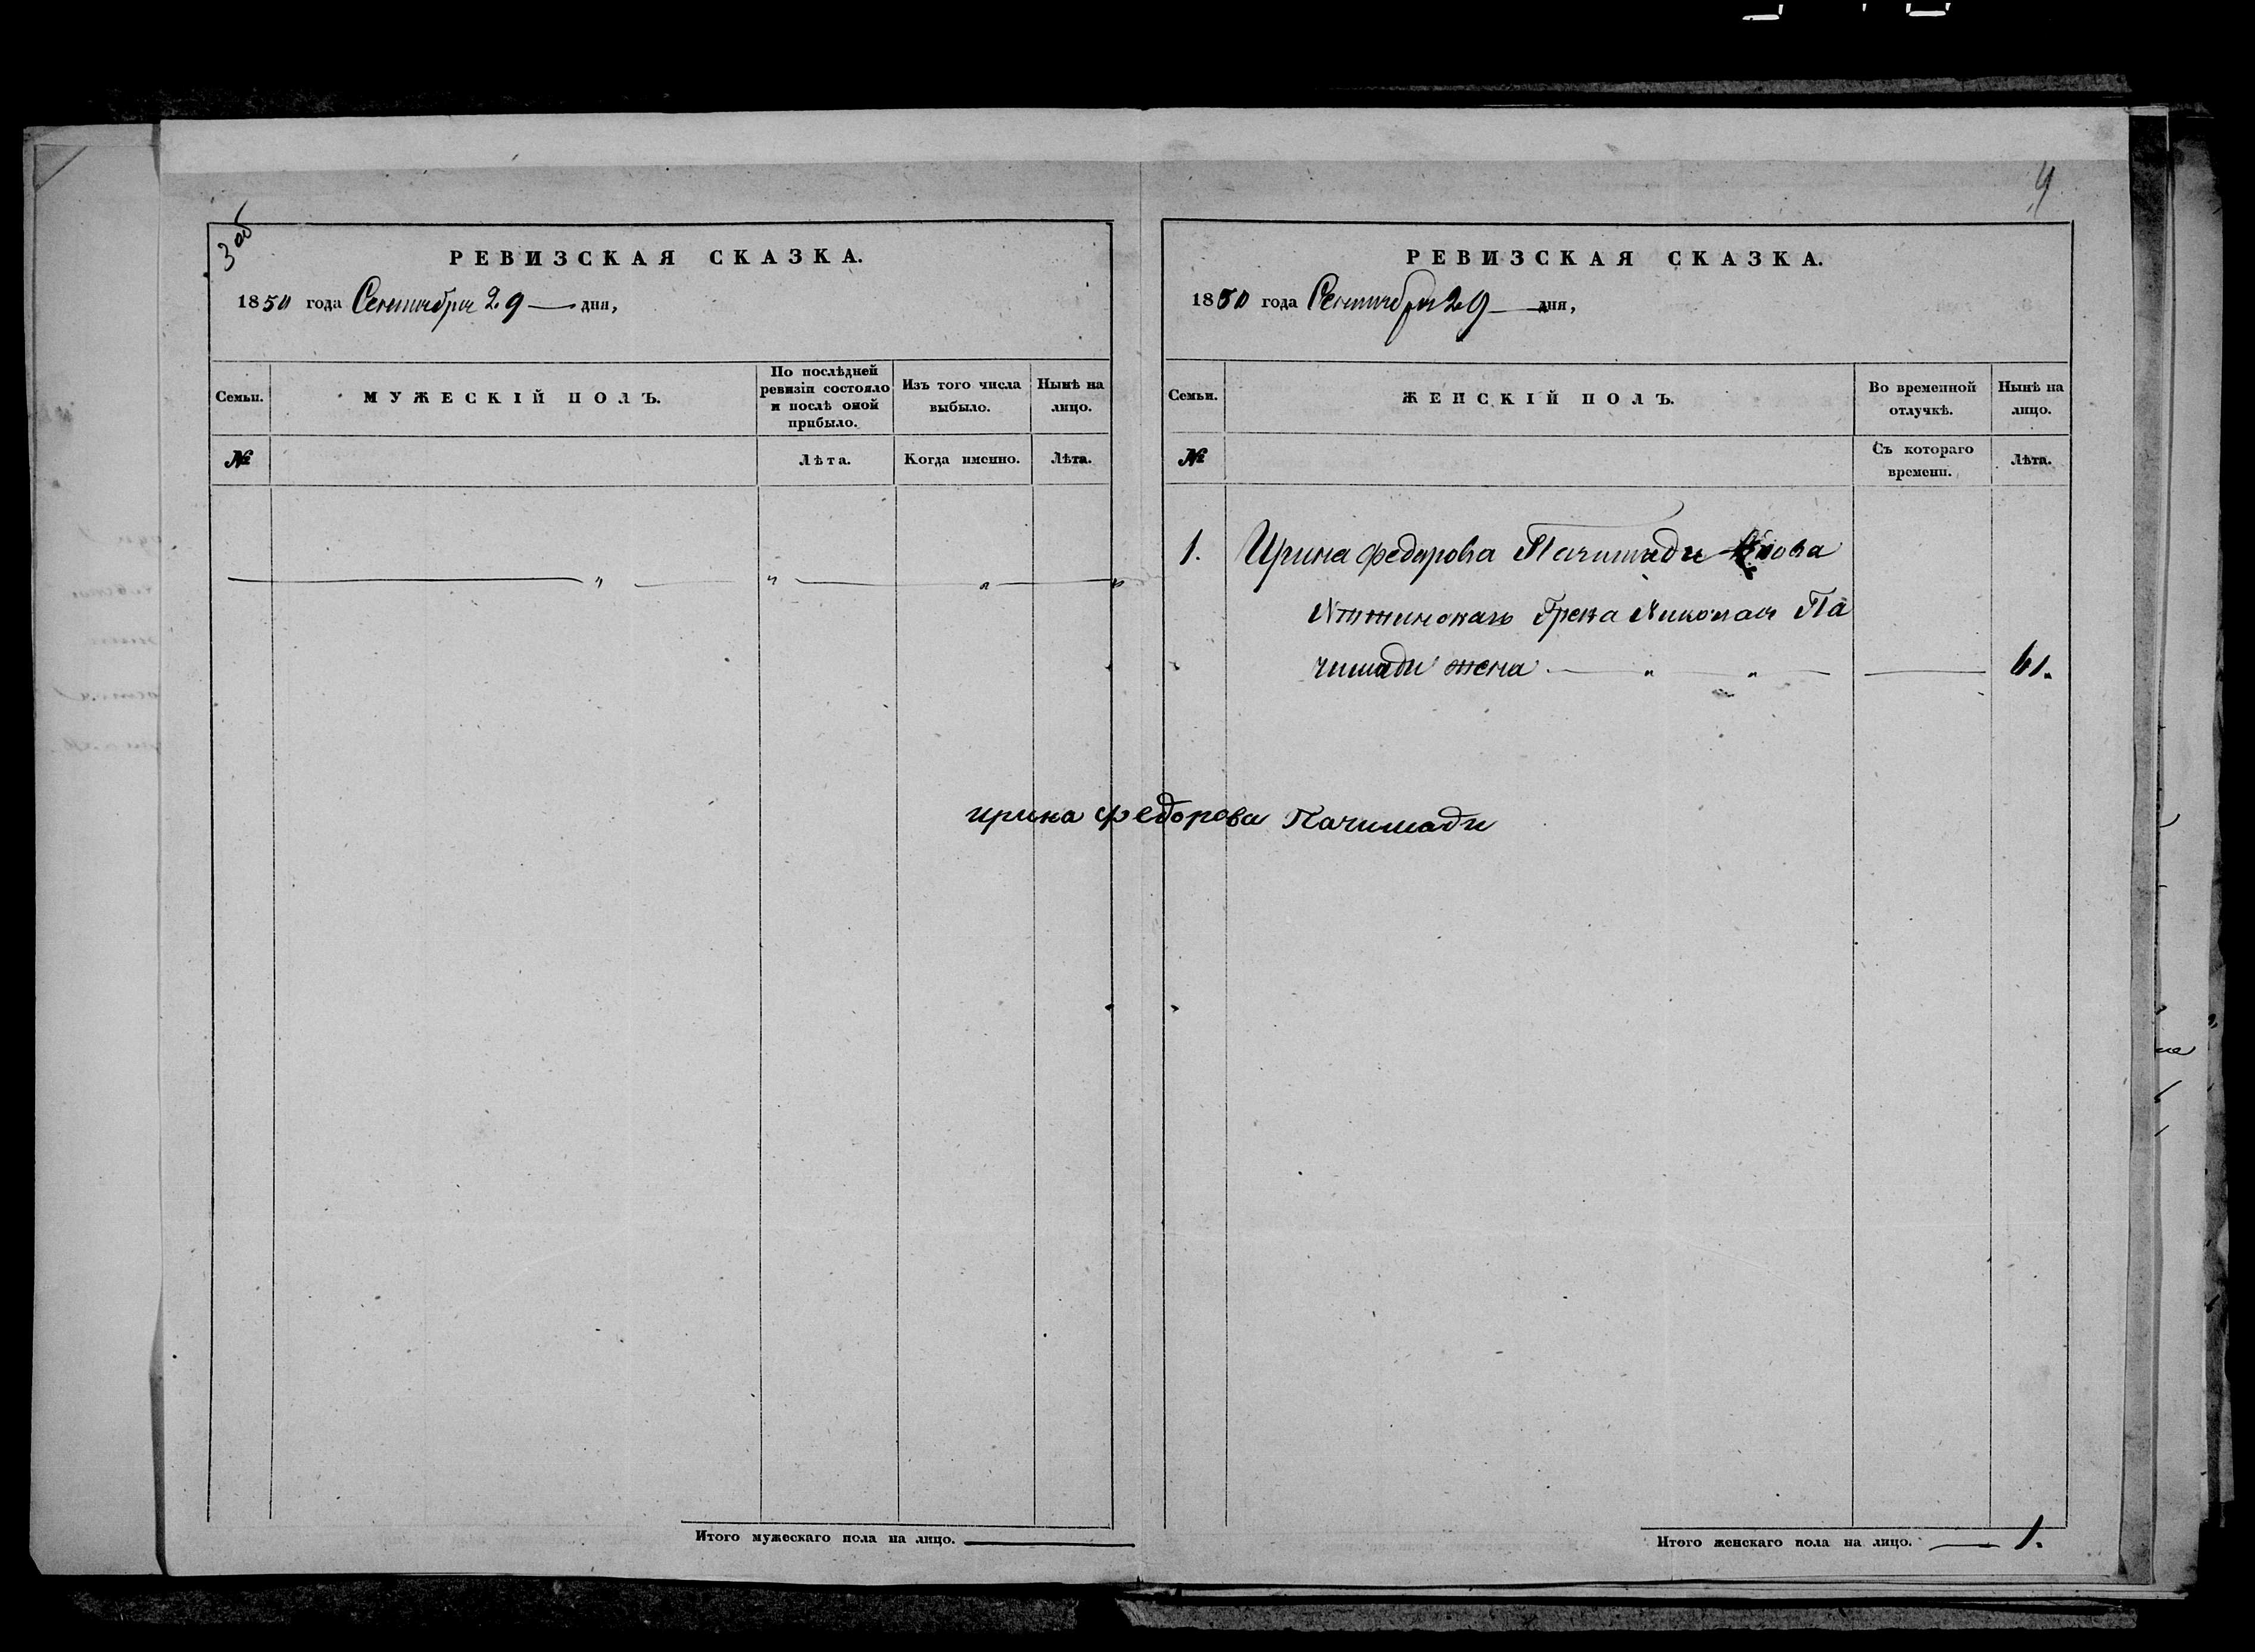 3 об
РЕВИЗСКАЯ СКАЗКА.
1850 года Сентября 29 — дня,
Семьи.
МУЖЕСКІЙ ПОЛЪ.
По послѣдней ревизіи состояло и послѣ оной прибыло.
Изъ того числа выбыло.
Нынѣ на лицо.
№
Лѣта.
Когда именно.
Лѣта.
Итого мужескаго пола на лицо. —
4
РЕВИЗСКАЯ СКАЗКА.
1850 года Сентября 29 — дня,
Семьи.
ЖЕНСКІЙ ПОЛЪ.
Во временной отлучкѣ.
Нынѣ на лицо.
№
Съ котораго времени.
Лѣта.
1. Ирина Федорова Пачимади вдова
Нѣжинскаго Грека Николая Па
чимади жена — " — " — — 61.
ирина Федорова Пачимади
Итого женскаго пола на лицо. — 1.